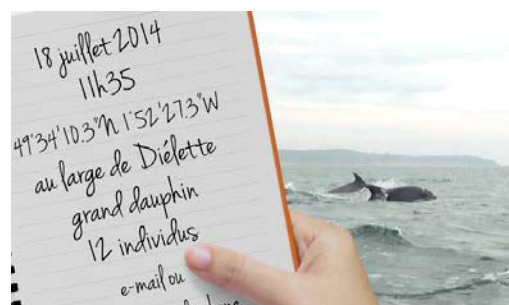 18 juillet 2014
11h35
49°34'10.3"N 1°52'27.3"W
au large de Diélette
grand dauphin
12 individus
e-mail ou